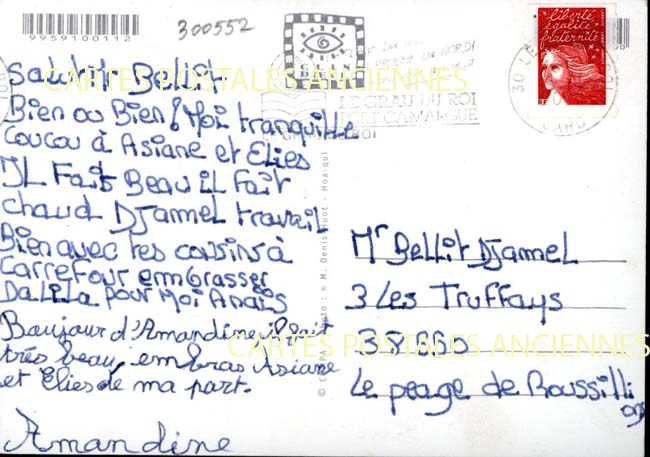 9959100112
300552
LE GRAU DU ROI
PORT CAMARGUE
liberté
égalité
fraternité
RF
30 LE
GARD
Salut Mr Bellit
Bien ou Bien! Moi tranquille
Coucou à Asiane et Elies
IL Fait Beau il Fait
chaud Djamel travail
Bien avec tes cousins à
Carrefour emmgrasser
Dalila pour Moi Anaïs
Baujour d'Amandine il fait
très beau, embras Asiane
et Elies de ma part.
Amandine
Mr Bellit Djamel
3 Les Truffays
38660
Le peage de Roussilli
ong
CARTES POSTALES ANCIENNES
CARTES POSTALES ANCIENNES